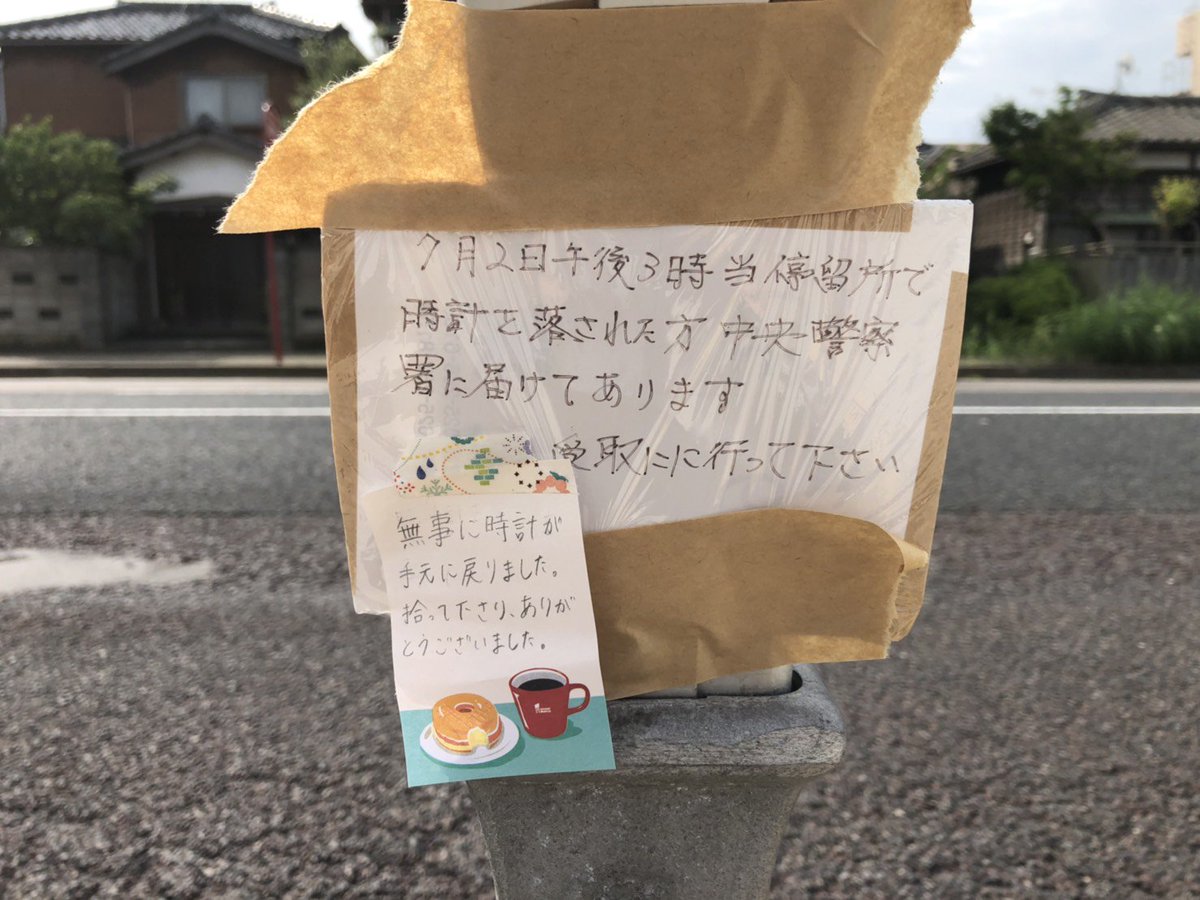 7月2日午後3時当停留所で
時計を落された方中央警察
署に届けてあります
受取にに行って下さい
無事に時計が
手元に戻りました。
拾って下さり、ありが
とうございました。